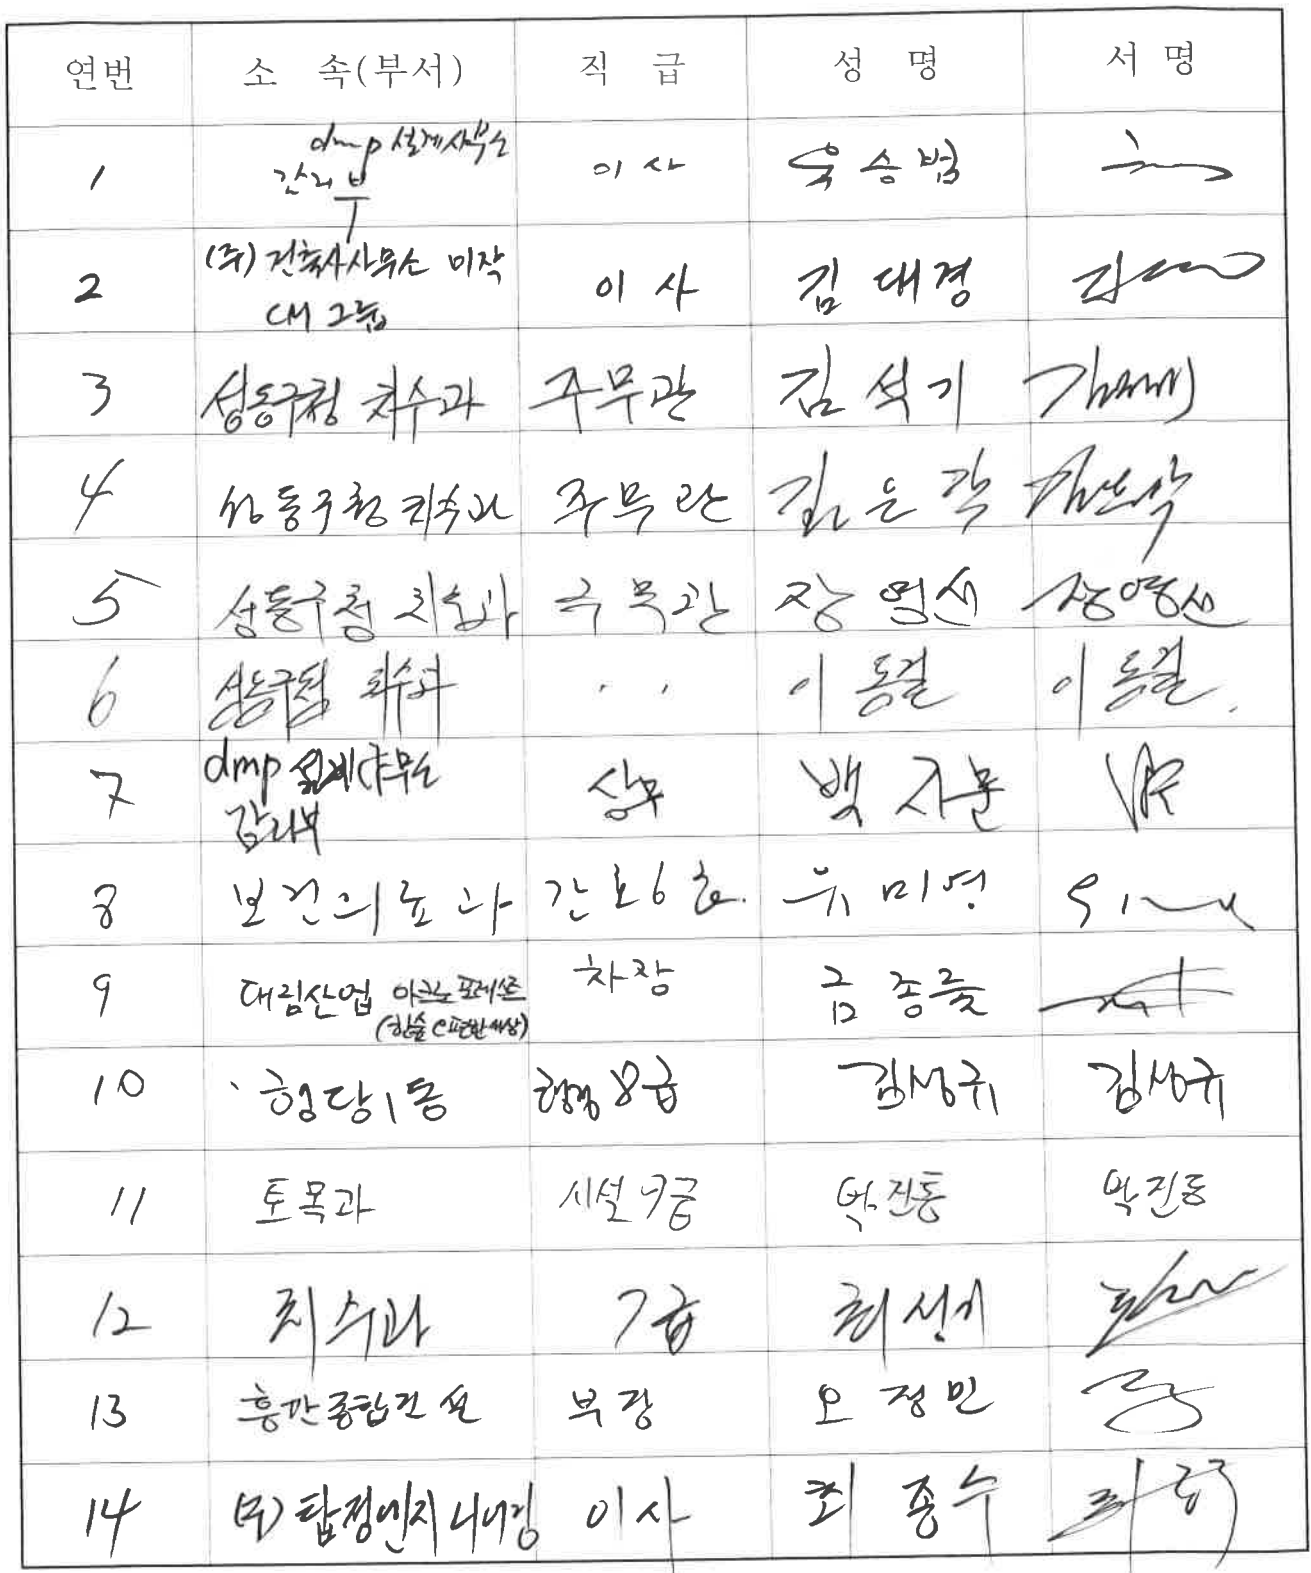 연번 소 속(부서) 직 급 성 명 서 명
dmp 설계사무소
1 감리부 이사 유승범
(주)건축사사무소 미작
2 CM 그룹 이사 김대경
3 성동구청 치수과 주무관 김석기
4 성동구청 치수과 주무관 김은락
5 성동구청 치수과 주무관 장영선 장영선
6 성동구청 치수과 〃 이동걸 이동걸.
dmp 설계사무소
7 감리부 상무 백자문
8 보건의료과 간호6급. 유미영
9 대림산업 아크로포레스트 차장 금종률
(한숲e편한세상)
10 행당1동 행정8급 김성규 김성규
11 토목과 시설9급 박진동 박진동
12 치수과 7급 최성기
13 흥한종합건설 부장 오정민
14 (주)탑정엔지니어링 이사 최종수